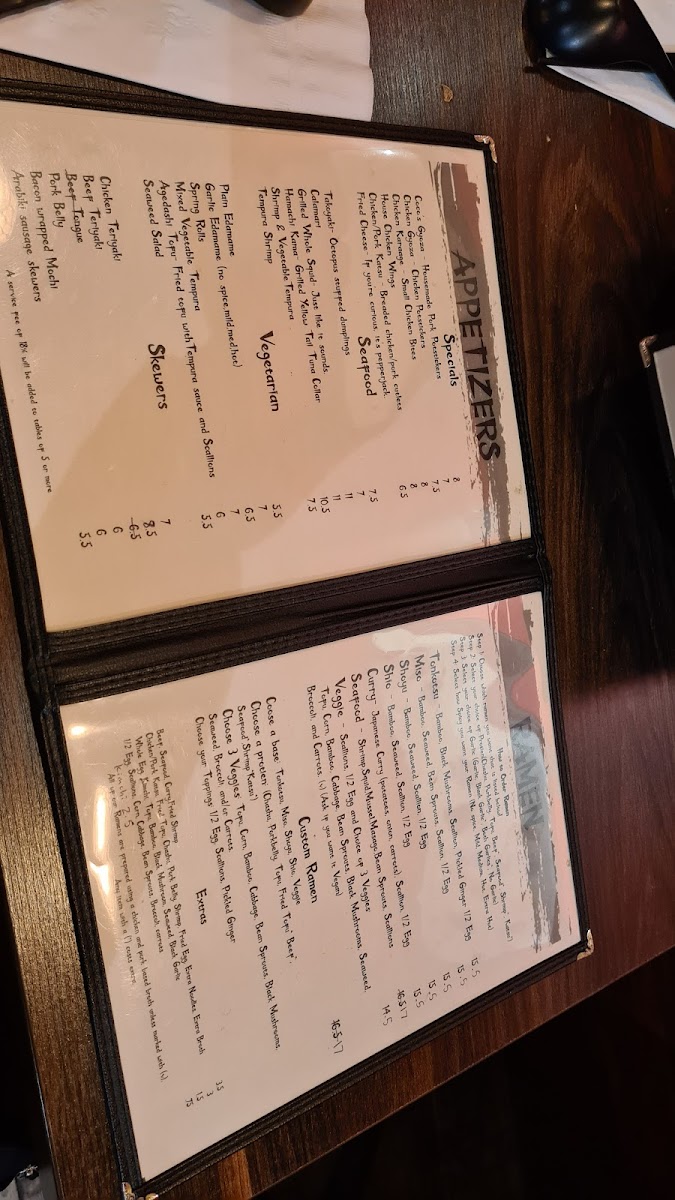 APPETIZERS
Specials
Coco's Gyoza - Housemade Pork Potstickers 8
Chicken Gyoza - Chicken Potstickers 7
Chicken Karaage - Small Chicken Bites 7.5
House Chicken Wings 8
Chicken/Pork Katsu - Breaded chicken/pork cutlets 8
Fried Cheese - If you're curious, it's pepperjack. 6.5
Seafood
Takoyaki- Octopus stuffed dumplings 7.5
Calamari 7
Grilled Whole Squid- Just like it sounds. 11
Hamachi Kama- Grilled Yellow Tail Tuna Collar 11
Shrimp & Vegetable Tempura 10.5
Tempura Shrimp 7.5
Vegetarian
Plain Edamame 5.5
Garlic Edamame (no spice,mild,med,hot) 7
Spring Rolls 6.5
Mixed Vegetable Tempura 7
Agedashi Tofu- Fried tofu with Tempura sauce and Scallions 6
Seaweed Salad 5.5
Skewers
Chicken Teriyaki 7
Beef Teriyaki 8.5
Beef Tongue 6.5
Pork Belly 6
Bacon wrapped Mochi 6
Arabiki sausage skewers 5.5
A service fee of 18% will be added to tables of 5 or more
RAMEN
How to Order Ramen
Step 1: Choose which ramen you want
Step 2: Select your choice of Protein
Step 3: Select your choice of Garlic
Step 4: Select how Spicy you want your Ramen
Tonkotsu - Bamboo, Black Mushrooms, Scallion, Pickled Ginger, 1/2 Egg 15.5
Miso - Bamboo, Seaweed, Bean Sprouts, Scallion, 1/2 Egg 15.5
Shoyu - Bamboo, Seaweed, Scallion, 1/2 Egg 15.5
Shio - Bamboo, Seaweed, Scallion, 1/2 Egg 15.5
Curry- Japanese Curry (potatoes, onion, carrots), Scallion, 1/2 Egg 15.5
Seafood - Shrimp,Squid,Mussel,Masago,Bean Sprouts, Scallions 16.5 17
1/2 Egg and Choice of 3 Veggies
Veggie - Scallions, Black Mushrooms, Seaweed, 14.5
Tofu, Corn, Bamboo, Cabbage, Bean Sprouts,
Broccoli, and Carrots. (v) (Ask if you want it Vegan)
Custom Ramen 16.5 17
Choose a base: Tonkotsu, Miso, Shoyu, Shio, Veggie
Choose a protein: (Chashu, Porkbelly, Tofu, Fried Tofu, Beef*,
Seafood*,Shrimp*,Katsu*)
Choose 3 Veggies: Tofu, Corn, Bamboo, Cabbage, Bean Sprouts, Black Mushrooms,
Seaweed, Broccoli, and/or Carrots
Choose your Toppings: 1/2 Egg, Scallions, Pickled Ginger
Extras
Beef, Seafood, Curry,Fried Shrimp 3.5
Chicken/Pork Katsu, Fried Tofu, Chashu, Pork Belly, Shrimp, Fried Egg, Extra Noodles, Extra Broth 3
Whole Egg, Kimchi, Tofu, Bamboo, Black Mushroom, Seaweed, Black Garlic 1.5
1/2 Egg, Scallions, Corn, Cabbage, Bean Sprouts, Broccoli, carrots .75
All of our Ramens are prepared using a chicken and pork based broth unless marked with (v).